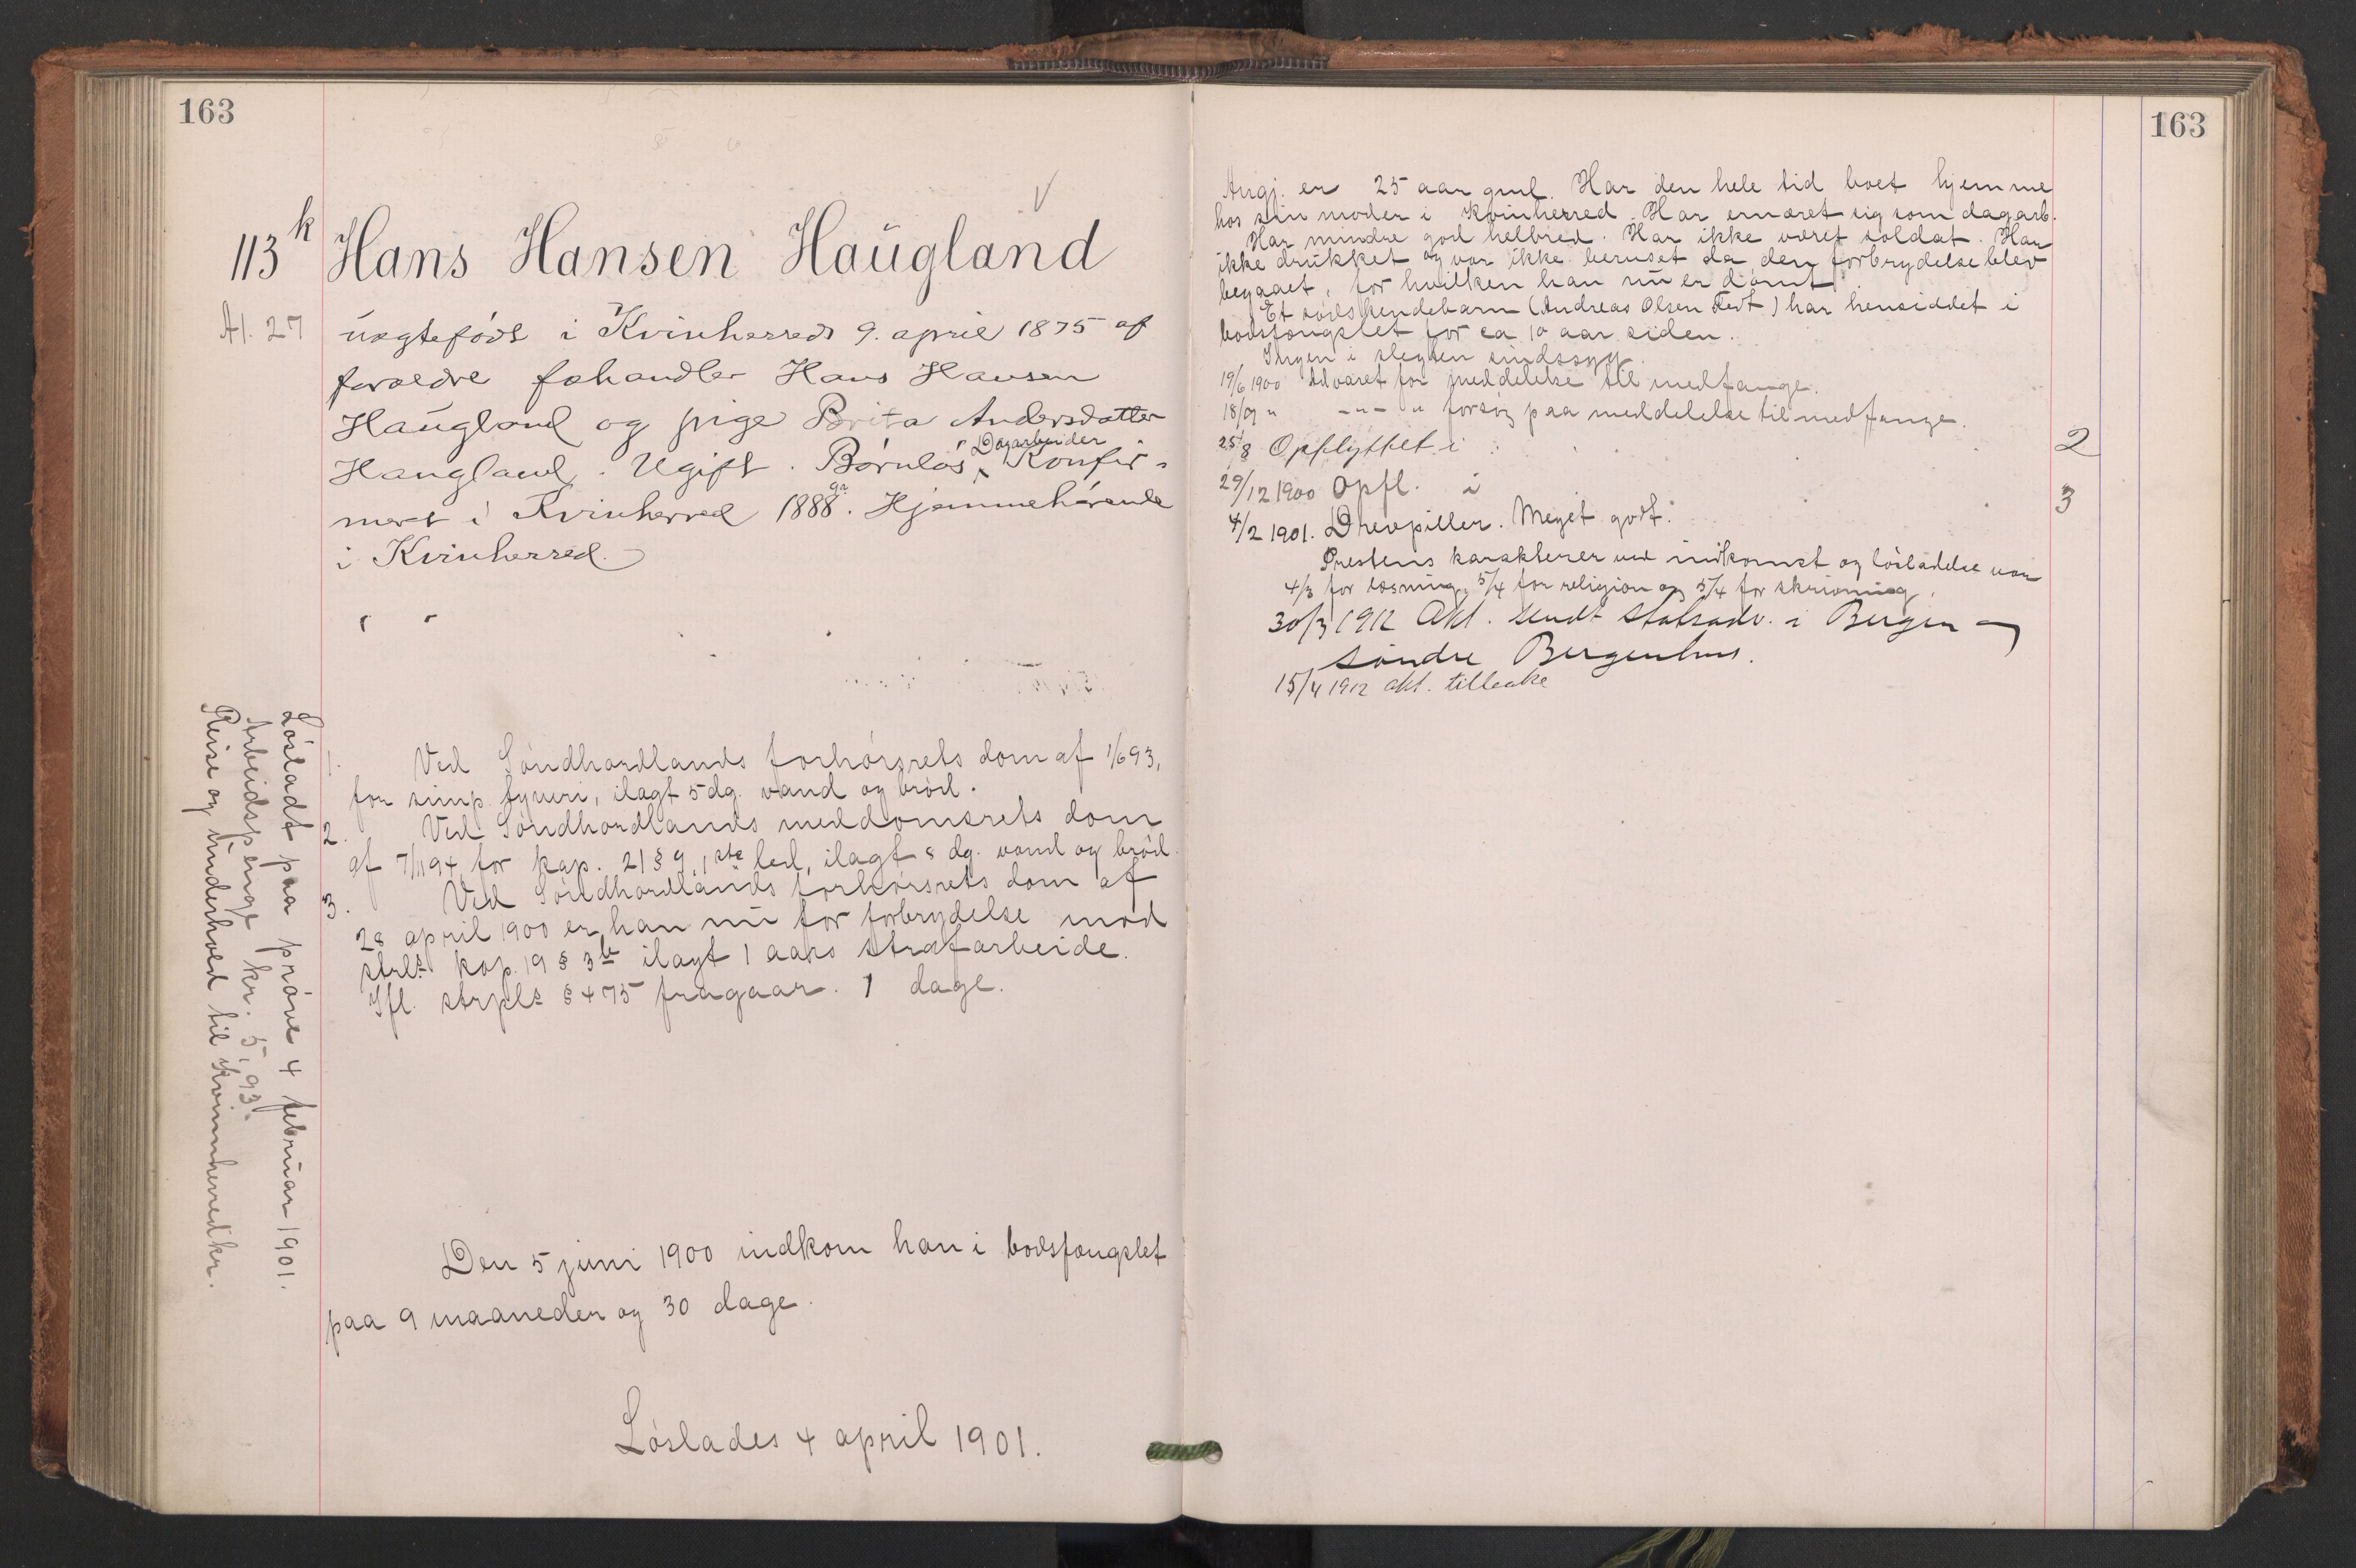 163
113 k Hans Hansen Haügland
At. 27
uægtefödt i Kvinherred 9. april 1875 af
foræeldre fæhandler Hans Hansen
Haügland og pige Brita Andersdatter
Haugland. Ugift. Börnlös, Dagarbeider Konfir-
mert i Kvinherred 1888. Hjemmehörende
i Kvinherred.
1. Ved Söndhordlands forhörsrets dom af 1/6 93,
for simp. tyveri, ilagt 5 dg. vand og bröd.
2. Ved Söndhordlands meddomsrets dom
af 7/11 94 for kap. 21 § 9, 1ste led, ilagt 8 dg. vand og bröd.
3. Ved Söndhordlands forhörsrets dom af
28 april 1900 er han nü for forbrydelse mod
strls. kap. 19 § 3 b ilagt 1 aars strafarbeide.
Ifl. strpls § 475 fragaar. 1 dage.
Den 5 juni 1900 indkom han i bodsfængslet
paa 9 maaneder og 30 dage.
Löslades 4 april 1901.
Lösladt paa pröve 4 februar 1901.
Arbeidspenge kr. 5,93.
Reise og ünderhold til Kvinnherred kr.
163
Angj. er 25 aar gml. Har den hele tid boet hjemme
hos sin moder i Kvinherred. Har ernæret sig som dagarb.
Har mindre god helbred. Har ikke været soldat. Har
ikke drükket og var ikke beruset da den forbrydelse blev
begaaet, for hvilken han nü er dömt.
Et södskendebarn (Andreas Olsen Tedt) har hensiddet i
bodsfængslet for ca 10 aar siden.
Ingen i slegten sindssyg.
19/6 1900 Advaret for meddelelse til medfange.
18/9 " -"- " forsög paa meddelelse til medfange.
25/8 Opflyttet i 2
29/12 1900 Opfl. i 3
4/2 1901. Drevpiller. Meget godt.
Prestens karakterer ved indkomst og lösladelse var
4/3 for læsning, 5/4 for religion og 5/4 for skrivning.
30/3 1912 Akt. sendt Statsadv. i Bergen og
söndre Bergenhus.
15/4 1912 akt. tilbake